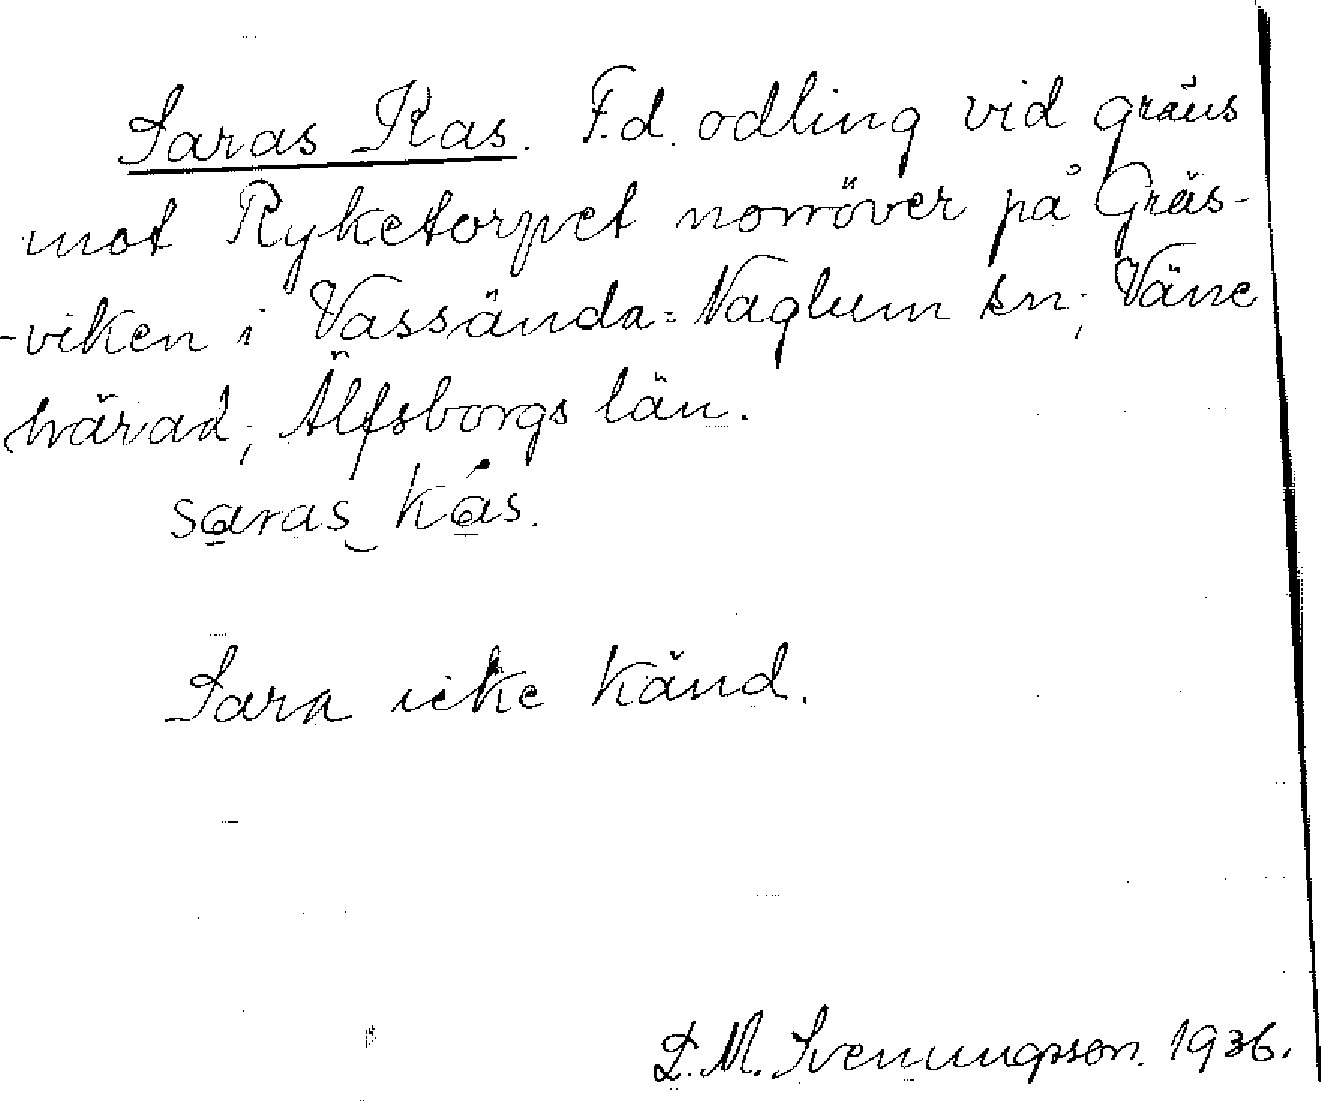 Saras Kas. F.d. odling vid gräns
mot Ryketorpet norröver på Gräs-
-viken i Vassända-Naglum sn; Väne
härad; Älfsborgs län.
saras kás.
Sara icke känd.
L.M. Svenungsson. 1936.